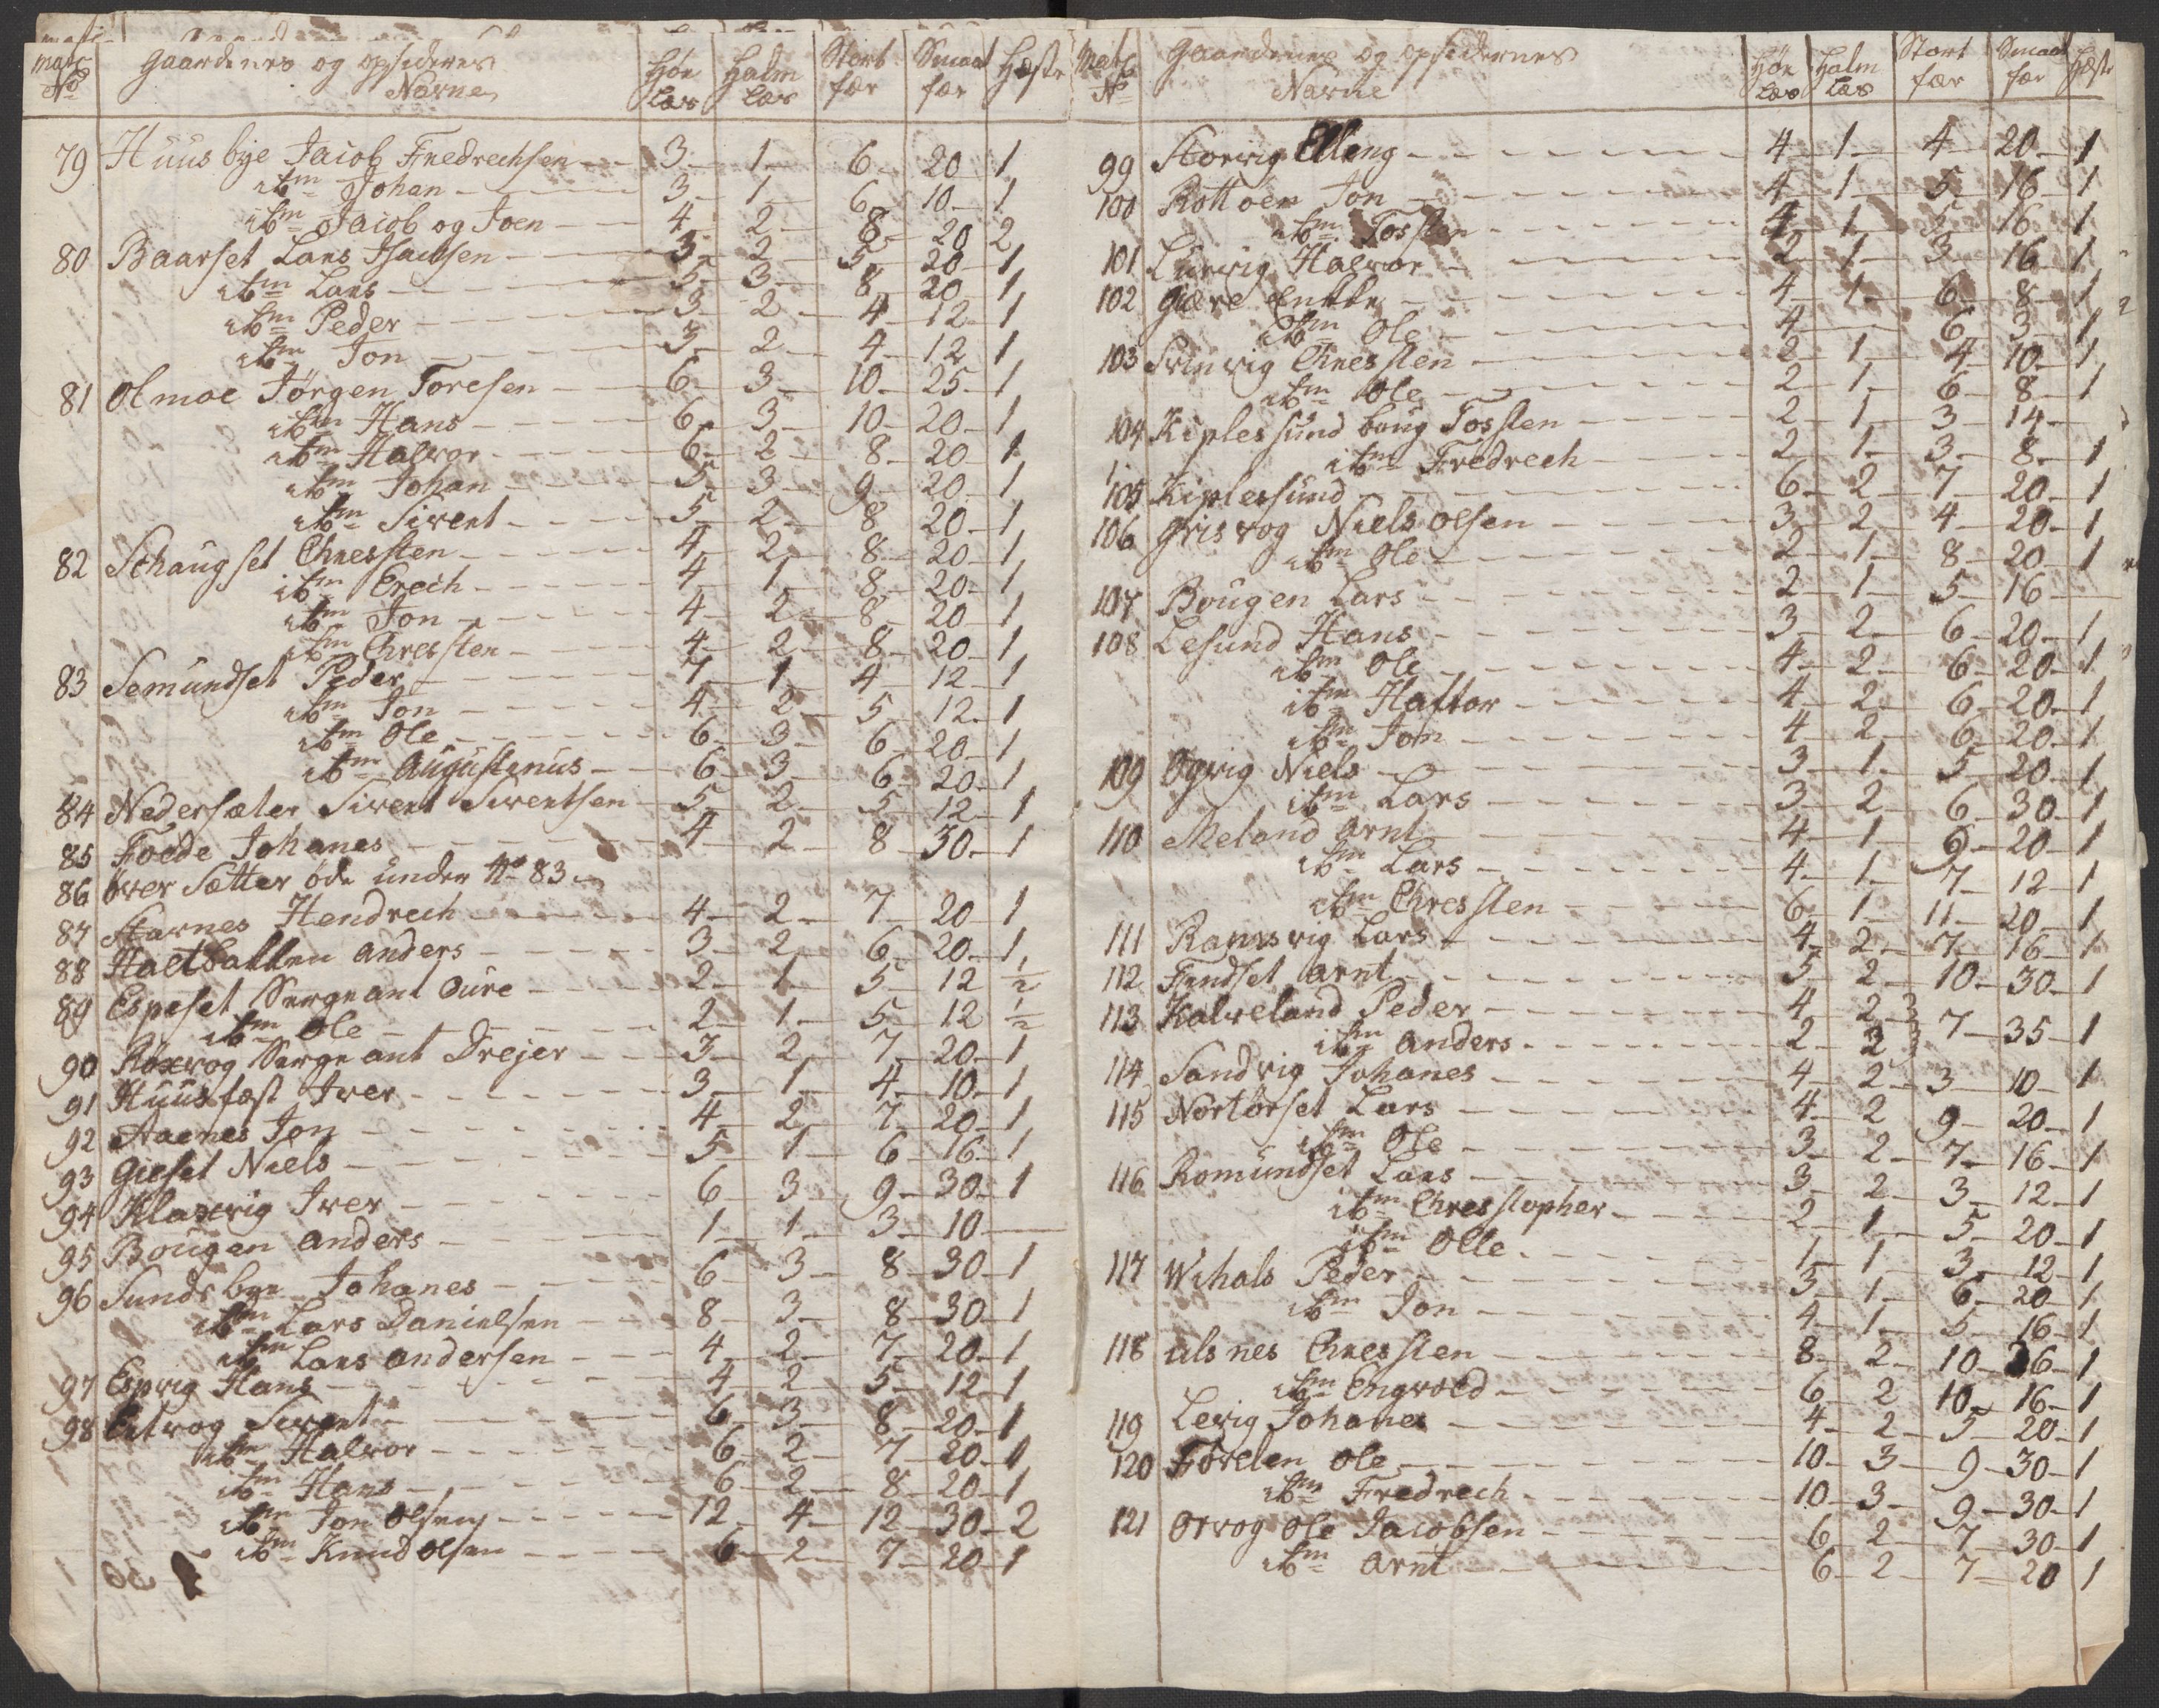 Matr No Gaardenes og opsideres Navne Høe Læs Halm Læs Stort fær Smaat fær Hæste
79 Huusbye Jacob Fredrechsen 3 1 6 20 1
ibm Johan 3 1 6 10 1
ibm Jacob og Joen 4 2 8 20 2
80 Baarset Lars Isachsen 3 2 5 20 1
ibm Lars 5 3 8 20 1
ibm Peder 3 2 4 12 1
ibm Jon 3 2 4 12 1
81 Olmoe Jörgen Toresen 6 3 10 25 1
ibm Hans 6 3 10 20 1
ibm Halvor 6 2 8 20 1
ibm Johan 5 3 9 20 1
ibm Sivert 5 2 8 20 1
82 Schaugset Chressten 4 2 8 20 1
ibm Erech 4 1 8 20 1
ibm Jon 4 2 8 20 1
ibm Chressten 4 2 8 20 1
83 Semundset Peder 7 1 4 12 1
ibm Jon 4 2 5 12 1
ibm Ole 6 3 6 20 1
ibm Augustenus 6 3 6 20 1
84 Nedersæter Sivert Sivertsen 5 2 5 12 1
85 Foede Johanes 4 2 8 30 1
86 over Sætter öde under No 83
87 Starnes Hendrech 4 2 7 20 1
88 Haltbakken anders 3 2 6 20 1
89 Espeset Sergeant Oure 2 1 5 12 ½
ibm Ole 2 1 5 12 ½
90 Röxvog Sergeant Drejer 3 2 7 20 1
91 Huusfæst Iver 3 1 4 10 1
92 Aaenes Jon 4 2 7 20 1
93 Gieset Niels 5 1 6 16 1
94 Klaxvig Iver 6 3 9 30 1
95 Bougen anders 1 1 3 10
96 Sundsbye Johanes 6 3 8 30 1
ibm Lars Danielsen 8 3 8 30 1
ibm Lars andersen 4 2 7 20 1
97 Espvig Hans 4 2 5 12 1
98 Eetvog Sivert 6 3 8 20 1
ibm Halvor 6 2 7 20 1
ibm Hans 6 2 8 20 1
ibm Jon Olsen 12 4 12 30 2
ibm Knud Olsen 6 2 7 20 1
Matr No Gaardenes og opsidernes Navne Høe Læs Halm Læs Stort fær Smaat fær Hæste
99 Storvig Elleng 4 1 4 20 1
100 Rottoen Jon 4 1 5 16 1
ibm Tossten 4 1 5 16 1
101 Lurvig Halvor 2 1 3 16 1
102 Giære Enkke 4 1 6 8 1
ibm Ole 4 6 3 1
103 Svinvig Chressten 2 1 4 10 1
ibm Ole 2 1 6 8 1
104 Kiplessund boug Tossten 2 1 3 14
ibm Fredrech 2 1 3 8 1
105 Kiplessund 6 2 7 20 1
106 Grisvog Niels Olsen 3 2 4 20 1
ibm Ole 2 1 8 20 1
107 Bougen Lars 2 1 5 16
108 Lesund Hans 3 2 6 20 1
ibm Ole 4 2 6 20 1
ibm Haftor 4 2 6 20 1
ibm Jon 4 2 6 20 1
109 Ogvig Niels 3 1 5 20 1
ibm Lars 3 2 6 30 1
110 Meland arnt 4 1 9 20 1
ibm Lars 4 1 7 12 1
ibm Chressten 6 1 11 20 1
111 Ramsvig Lars 4 2 7 16 1
112 Fendset arnt 5 2 10 30 1
113 Kalveland Peder 4 2
ibm anders 2 2 7 35 1
114 Sandvig Johanes 4 2 3 10 1
115 Nortörset Lars 4 2 9 20 1
ibm Ole 3 2 7 16 1
116 Romundset Lars 3 2 3 12 1
ibm Chresstopher 2 1 5 20 1
ibm Olle 1 1 3 12 1
117 Wihals Peder 3 1 6 20 1
ibm Jon 4 1 5 16 1
118 ulsnes Chressten 8 2 10 26 1
ibm Engvold 6 2 10 16 1
119 Levig Johanes 4 2 5 20 1
120 Förelen Ole 10 3 9 30 1
ibm Fredrech 10 3 9 30 1
121 Orvog Ole Jacobsen 6 2 7 30 1
ibm arnt 6 2 7 20 1